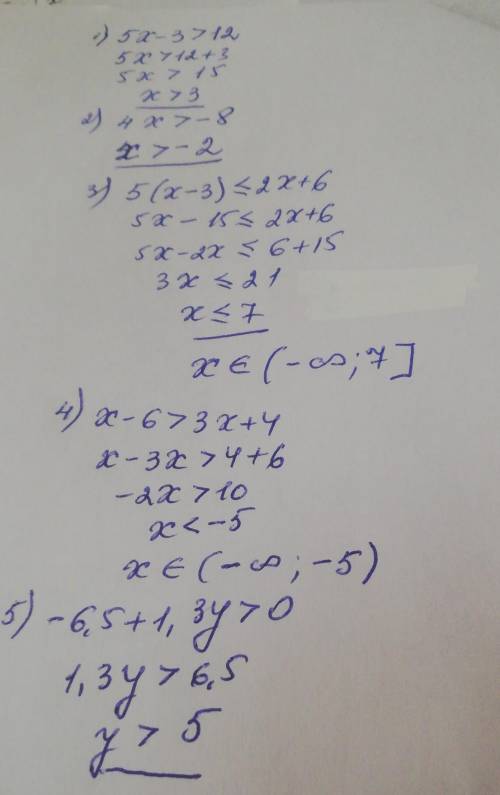 1) 5x-3>12
5x>12+3
5x > 15
x>3
2) 4x>-8
x>-2
3) 5(x-3)≤2x+6
5x-15≤2x+6
5x-2x ≤ 6+15
3x ≤ 21
x≤7
x∈(-∞;7]
4) x-6>3x+4
x-3x>4+6
-2x>10
x<-5
x∈(-∞;-5)
5) -6,5+1,3y>0
1,3y>6,5
y > 5